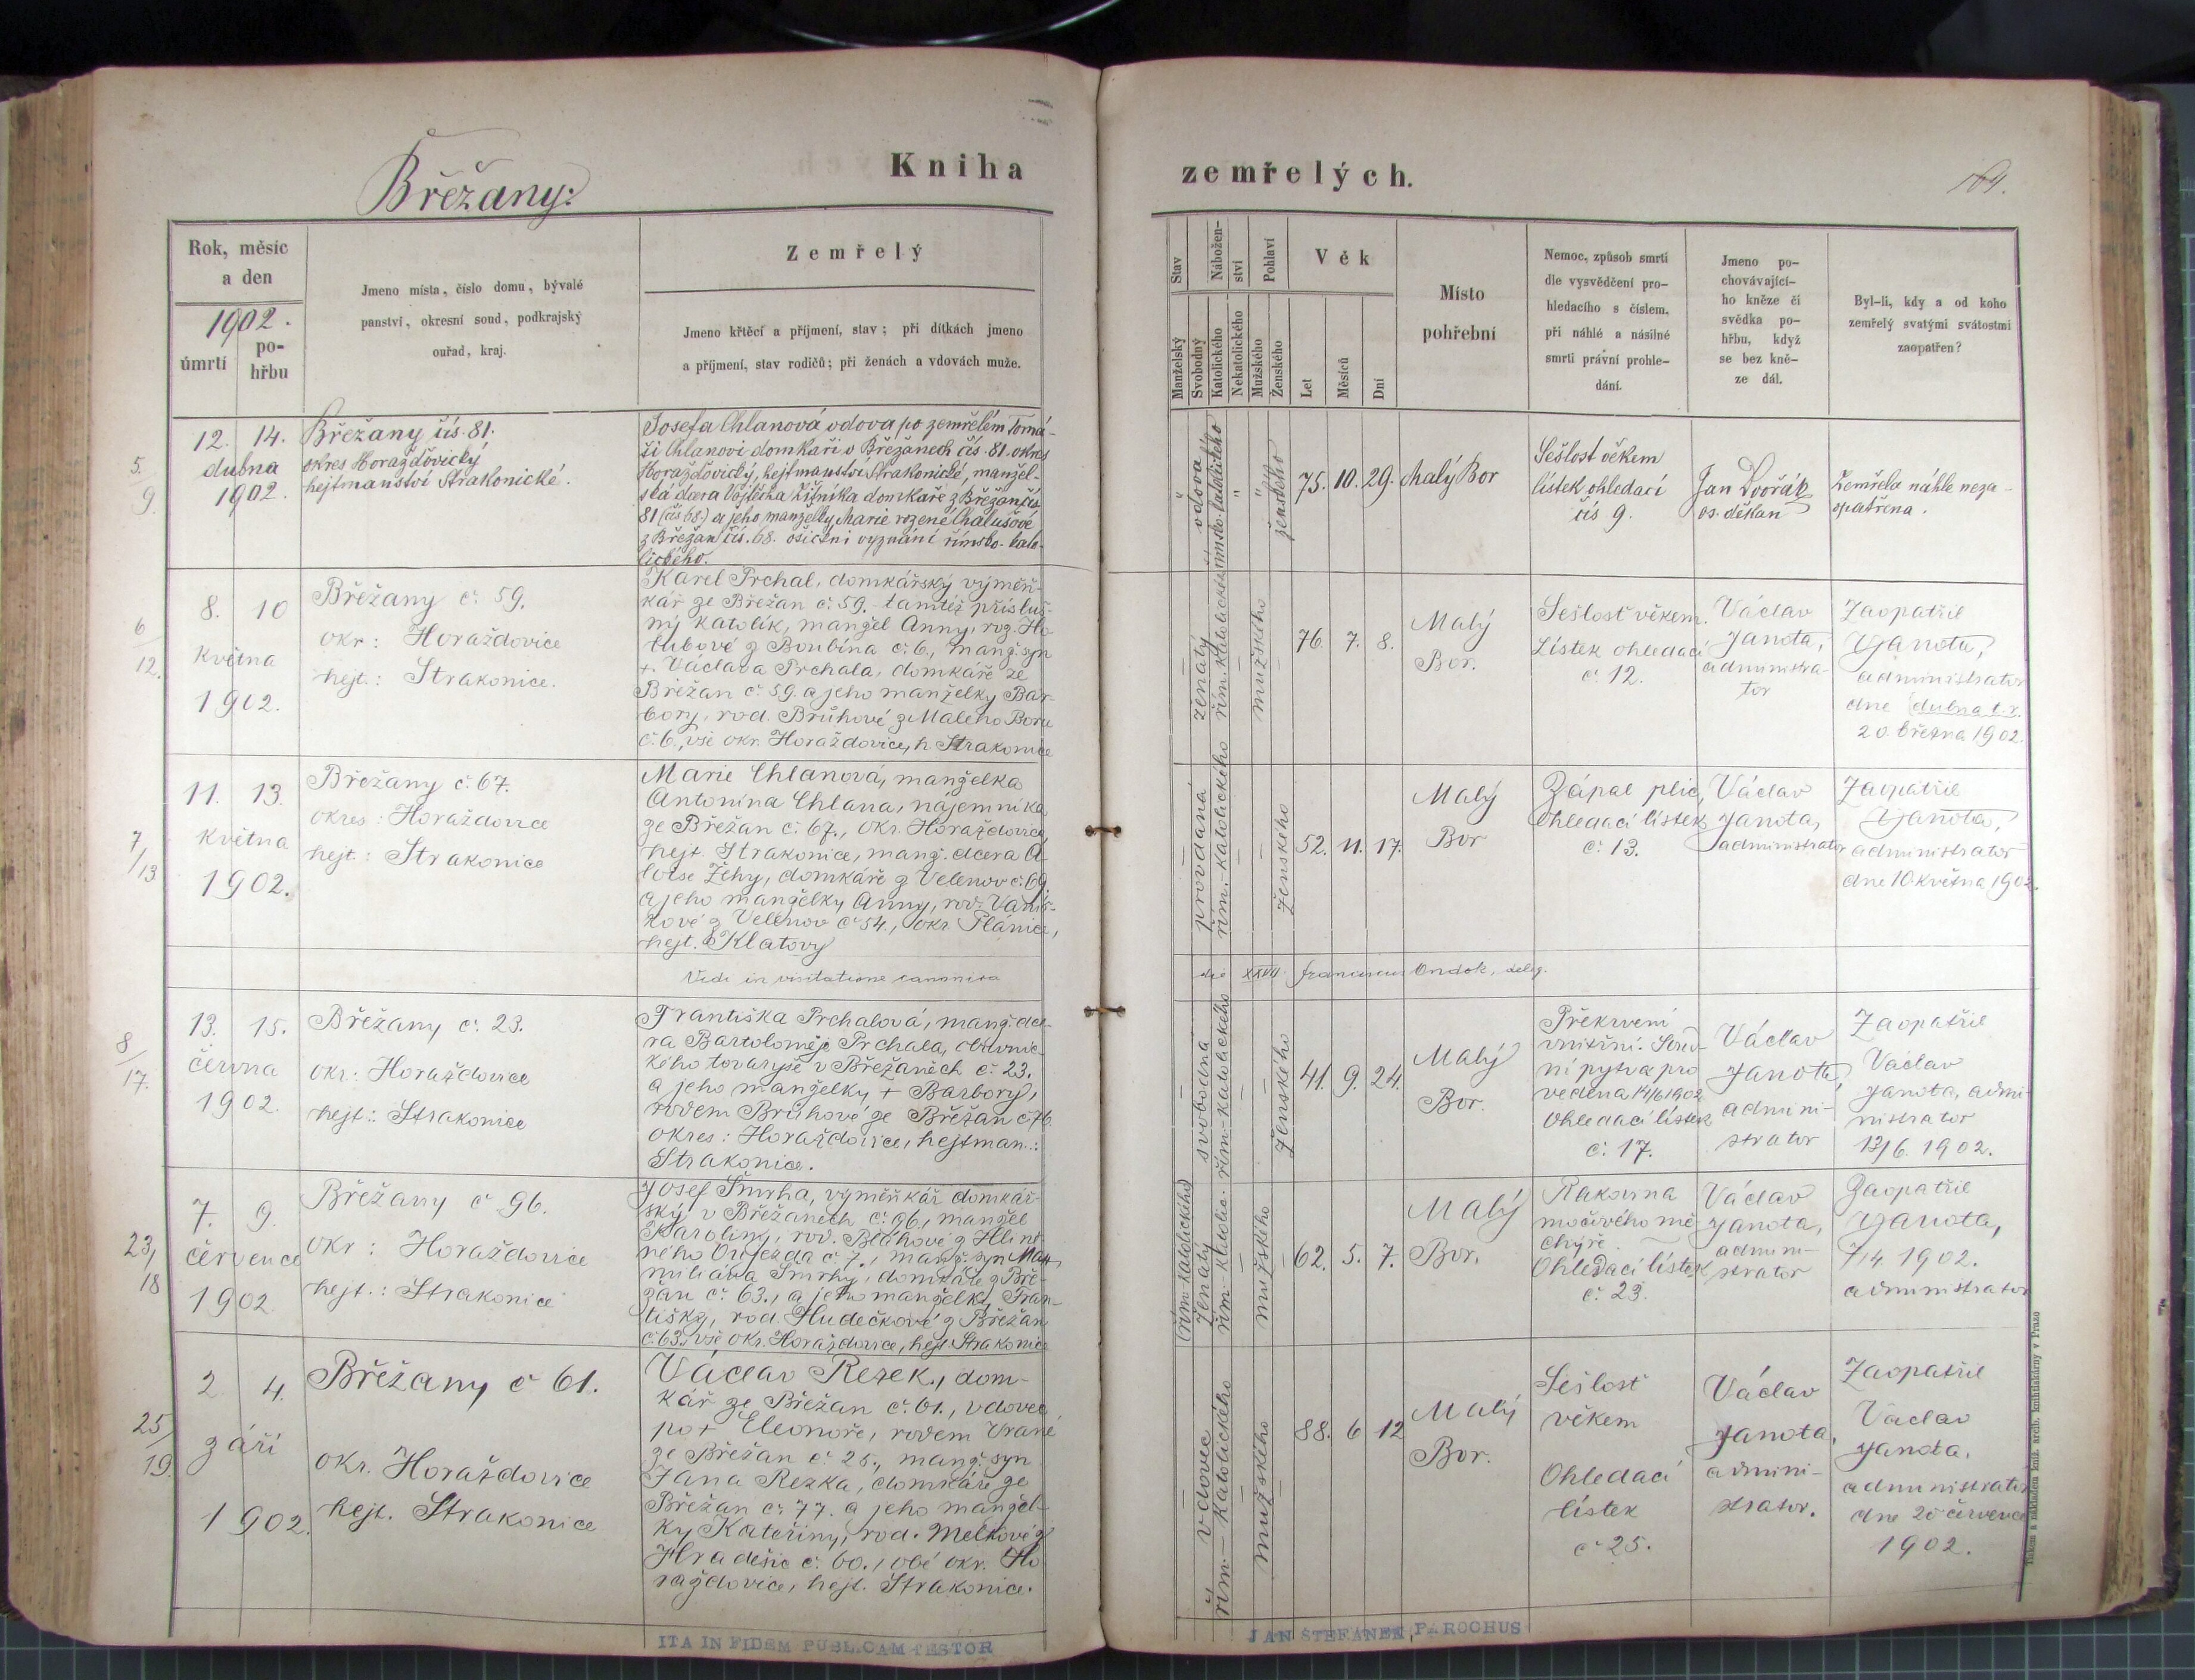 Kniha
zemřelých.
Břěžany:
169.
Rok, měsíc
a den
1902.
úmrtí
po-
hřbu
Jmeno místa, číslo domu, bývalé
panství, okresní soud, podkrajský
ouřad, kraj.
Zemřelý
Jmeno křtěcí a příjmení, stav; při dítkách jmeno
a příjmení, stav rodičů; při ženách a vdovách muže.
Stav
Manželský
Svobodný
Nábožen-
ství
Katolického
Nekatolického
Pohlaví
Mužského
Ženského
Věk
Let
Měsíců
Dní
Místo
pohřební
Nemoc, způsob smrti
dle vysvědčení pro-
hledacího s číslem,
při náhlé a násilné
smrti právní prohle-
dání.
Jmeno po-
chovávající-
ho kněze či
svědka po-
hřbu, když
se bez kně-
ze dál.
Byl-li, kdy a od koho
zemřelý svatými svátostmi
zaopatřen?
5.
9.
12. 14.
dubna
1902.
Břěžany čís. 81.
okres Horažďovický
hejtmanství Strakonické.
Josefa Chlanová vdova po zemřelém Tomá-
ši Chlanovi domkaři v Břěžanech čís. 81. okres
Horažďovický, hejtmanství Strakonické, manžel-
ská dcera Vojtěcha Žitníka domkáře z Brěžan čís.
81 (čís 68.) a jeho manželky Marie rozené Chalušové
z Břežan čís. 68. ošiceni vyznání římsko-kato-
lického.
vdova
římsko-katolického
"
"
ženského
75. 10. 29.
Malý Bor
Sešlost věkem
lístek ohledací
čís 9.
Jan Dvořák
os. děkan
Zemřela náhle neza-
opatřena.
6
12.
8. 10
května
1902.
Břěžany č. 59.
okr: Horaždovice
hejt.: Strakonice.
Karel Prchal, domkářský výměň-
kář ze Břěžan č. 59.- tamtéž přísluš-
ný katolík, manžel Anny, roz. Ho-
lubové z Boubína č. 6., manž. syn
+ Václava Prchala, domkáře ze
Břežan č. 59. a jeho manželky Bar-
bory, rod. Brůhové z Malého Boru
č. 6., vše okr. Horaždovice, h. Strakonice
ženatý
řím. katolického
mužského
76. 7. 8.
Malý
Bor.
Sešlost věkem.
Lístek ohledací
č. 12.
Václav
Janota,
administra-
tor
Zaopatřil
Janota,
administrator
dne dubna t. r.
20. března 1902.
7/13
11. 13.
května
1902.
Břežany č. 67.
okres: Horaždovice
hejt.: Strakonice
Marie Chlanová, manželka
Antonína Chlana, nájemníka
ze Břěžan č. 67., okr. Horaždovice
hejt. Strakonice, manž. dcera A-
loise Žehy, domkáře z Velenov č. 69.
a jeho manželky Anny, rod.
kové z Velenov č. 54., okr. Plánice,
hejt. Klatovy
provdaná
řím.-katolického
ženského
52. 11. 17.
Malý
Bor
Zápal plic,
Ohledací lístek
č. 13.
Václav
Janota,
administrator
Zaopatřil
Janota,
administrator
dne 10. května 1902.
Vidi in visitatione canonica
die XXVII. Franciscus Ondok, deleg.
8
17.
13. 15.
června
1902.
Břěžany č. 23.
okr: Horaždovice
hejt.: Strakonice
Františka Prchalová, manž. dce-
ra Bartoloměje Prchala, obuvnic-
kého tovaryše v Břěžanech č. 23.
a jeho manželky + Barbory,
rodem Brůhové ze Břěžan č. 76.
okres: Horaždovice, hejtman.:
Strakonice.
svobodná
řím-katolického
ženského
41. 9. 24.
Malý
Bor.
Překrvení
vnitřní. Soud-
ní pytva pro-
vedena 14/6 1902
Ohledací lístek
č. 17.
Václav
Janota,
admini-
strator
Zaopatřil
Václav
Janota, admi-
nistrator
12/6. 1902.
23/
18
7. 9.
července
1902
Břěžany č. 96.
Okr: Horaždovice
hejt.: Strakonice
Josef Šmrha, výměňkář domkář-
ský v Břěžanech č. 96, manžel
Karoliny, rod. Bláhové z Hlině-
ného Oujezda č. 7., manž. syn Max-
miliána Šmrhy, domkáře z Bře-
žan č. 63., a jeho manželky Fran-
tišky, rod. Hudečkové z Břěžan
č. 63., vše okr. Horaždovice, hejt. Strakonice
(řím katolického)
ženatý
řím.-katolic.
mužského
62. 5. 7.
Malý
Bor.
Rakovina
močového mě-
chýře.
Ohledací lístek
č. 23.
Václav
Janota,
admini-
strator
Zaopatřil
Janota,
7/4 1902.
administrator
25/
19.
2 4.
září
1902.
Břěžany č 61.
okr. Horaždovice
hejt. Strakonice
Václav Rezek, dom-
kář ze Břěžan č. 61., vdovec
po + Eleonoře, rodem Vrané
ze Břěžan č. 25., manž. syn
Jana Rezka, domkáře ze
Břěžan č. 77. a jeho manžel-
ky Kateřiny, rod. Melkové z
Hradešic č. 60., obé okr. Ho-
raždovice, hejt. Strakonice.
vdovec
řím-katolického
mužského
88. 6 12
Malý
Bor.
Sešlost
věkem
Ohledací
lístek
č 25.
Václav
Janota,
admini-
strator.
Zaopatřil
Václav
Janota,
administrator
dne 20 července
1902.
Tiskem a nákladem kníž. arcib. knihtiskárny v Praze
ITA IN FIDEM PUBLICAM TESTOR
JAN ŠTEFÁNEK, PAROCHUS